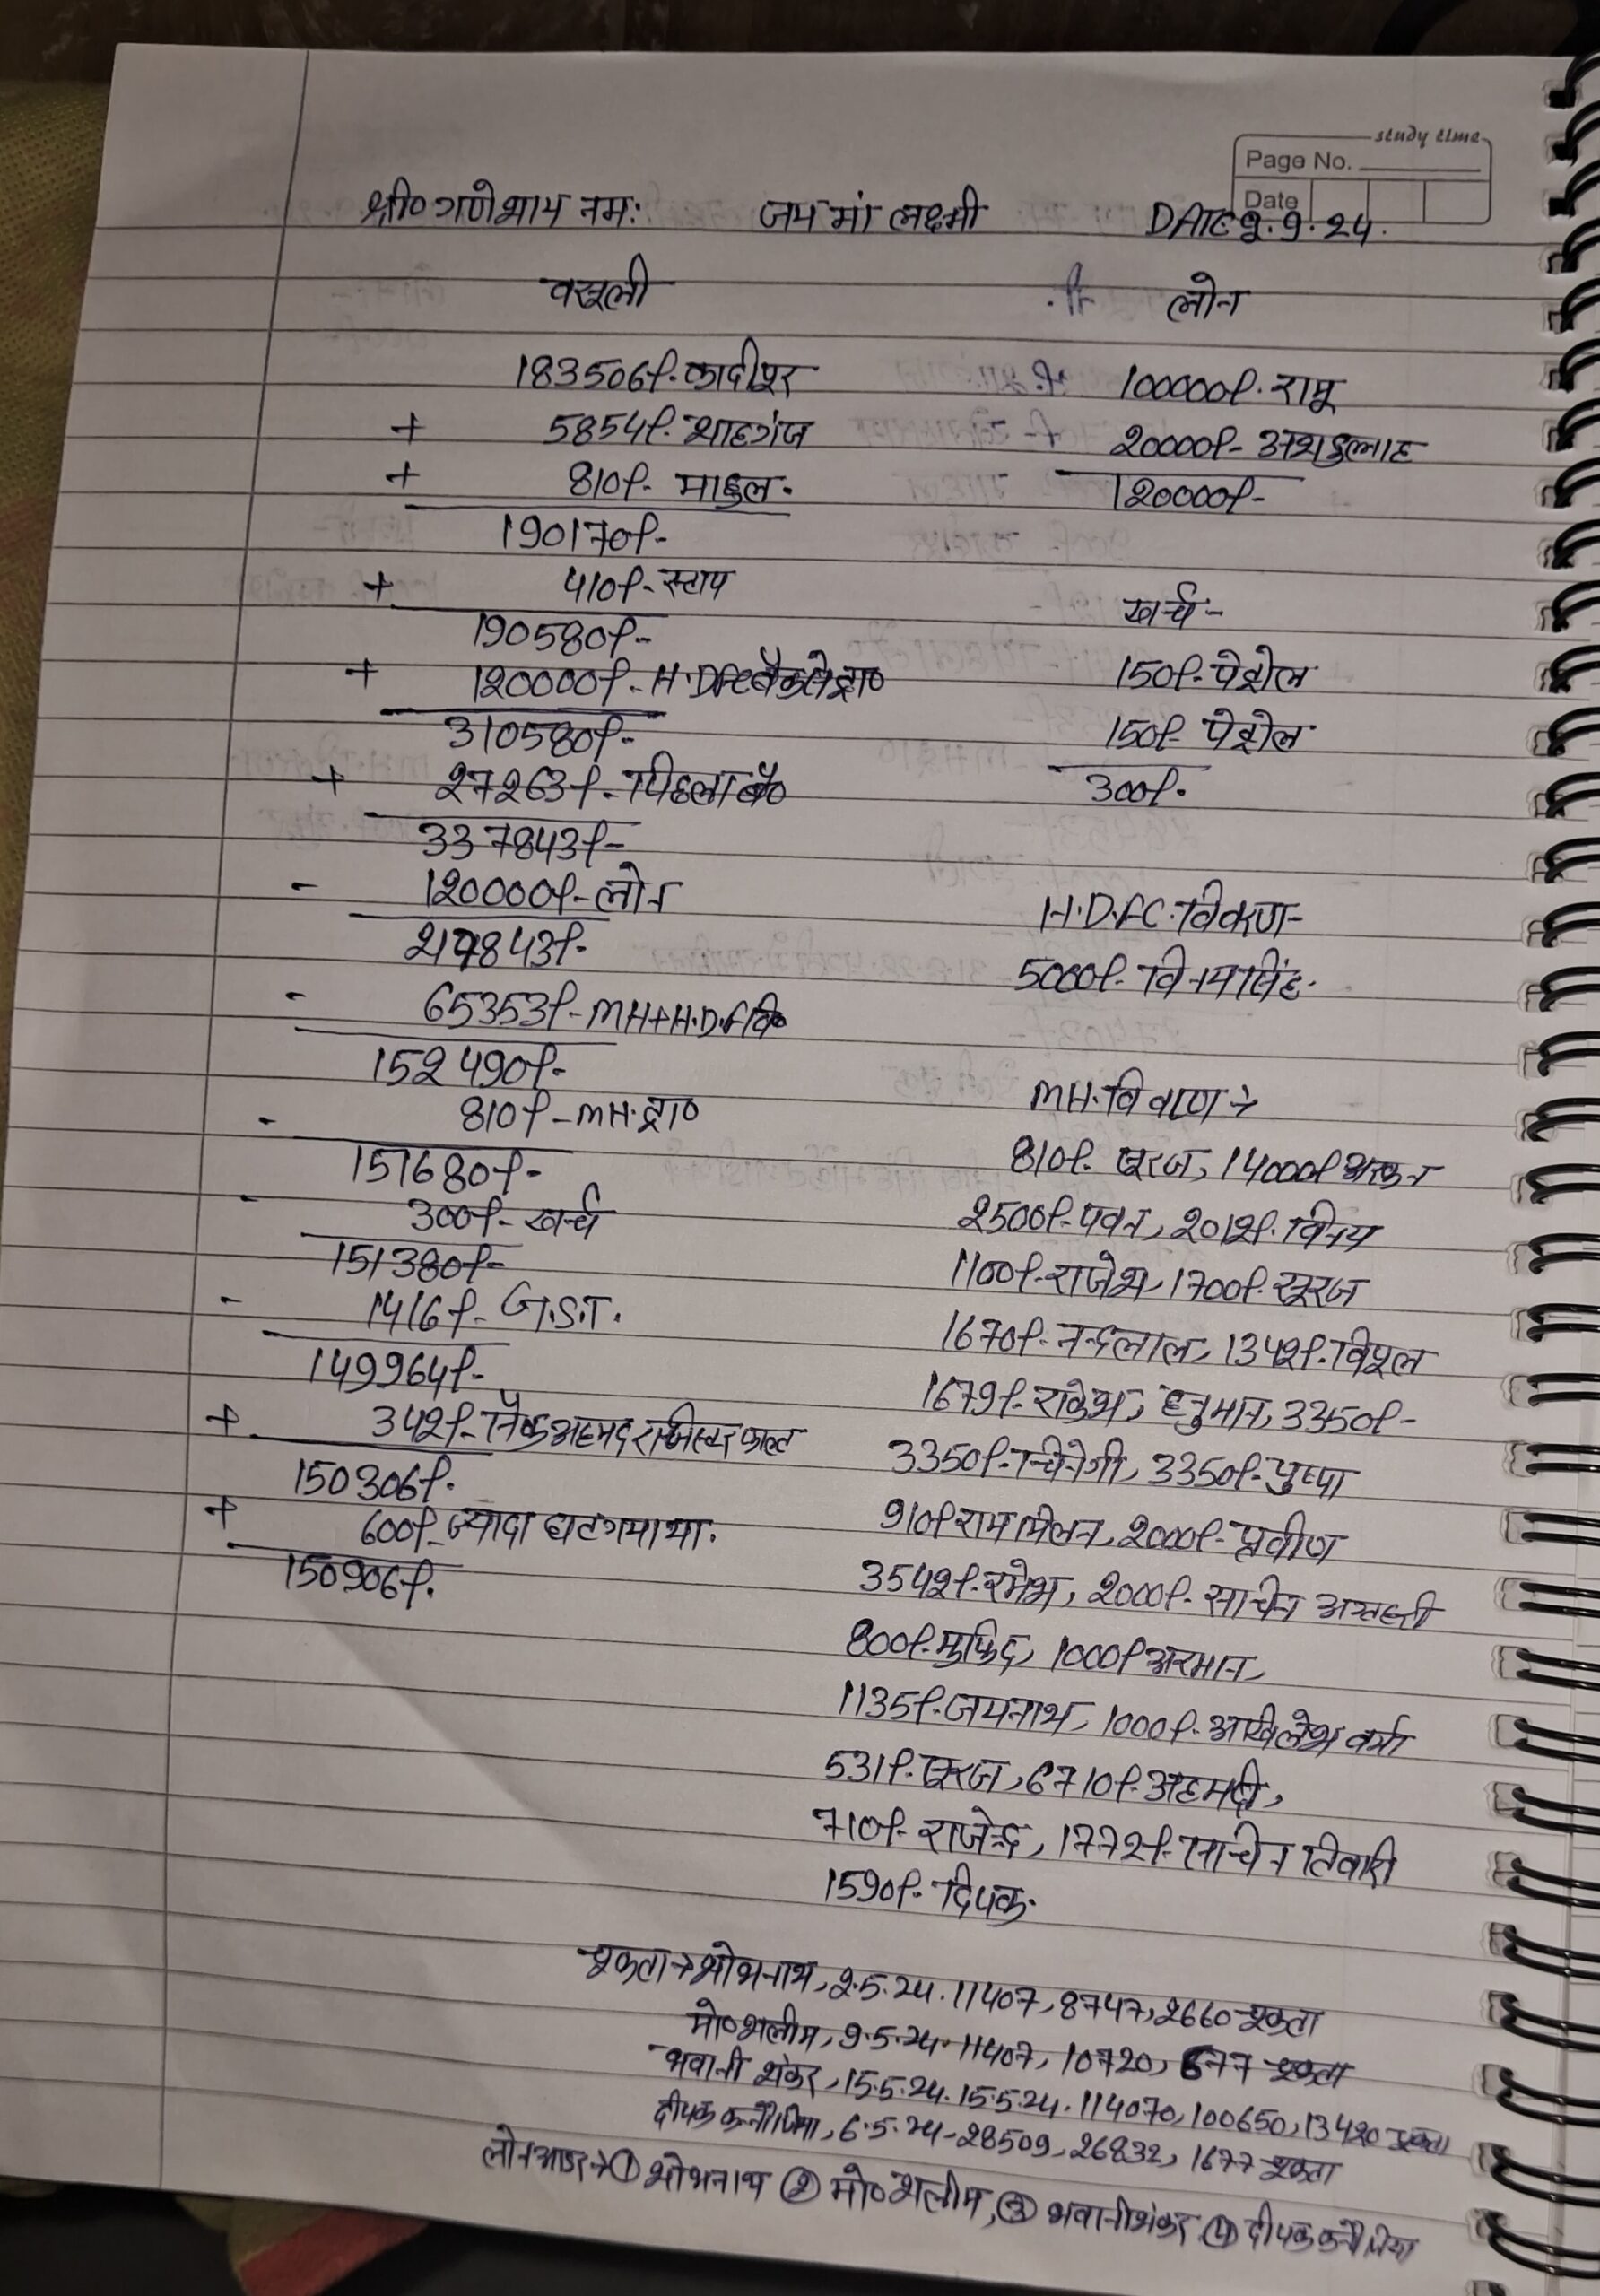 study time
Page No.
Date
श्री० गणेशाय नमः जय मां लक्ष्मी DATE 9.9.24.
वसूली
183506/- कादीपुर
+ 5854/- शाहगंज
+ 810/- माहुल.
190170/-
+ 410/- स्टाप
190580/-
+ 120000/- H.DFC बैंक से ट्रा०
310580/-
+ 27263/- पिछला बै०
337843/-
- 120000/- लोन
217843/-
- 65353/- MH+H.D.F वि०
152490/-
- 810/- MH.ट्रा०
151680/-
- 300/- खर्च
151380/-
- 1416/- G.S.T.
149964/-
+ 342/- अहमद
150306/-
+ 600/- ज्यादा घट गया था.
150906/-
लोन
100000/- रामू
20000/- अशहुल्लाह
120000/-
खर्च -
150/- पेट्रोल
150/- पेट्रोल
300/-
H.D.FC. विवरण-
5000/- विनय सिंह.
MH. विवरण →
810/- सूरज, 14000/-
2500/- पवन, 2012/- विनय
1100/- राजेश, 1700/- सूरज
1670/- नन्दलाल, 1342/- विपुल
1679/- राकेश, हनुमान, 3350/-
3350/- चिनेगी, 3350/- पुष्पा
910/- राम मिलन, 2000/- प्रवीण
3542/- रमेश, 2000/- सचिन
800/- मुफिद, 1000/- अरमान,
1135/- जयनाथ, 1000/- अखिलेश वर्मा
531/- सूरज, 6710/- अहमदी,
710/- राजेन्द्र, 1772/- सचिन तिवारी
1590/- दिपक.
चुकता → शोभनाथ, 2.5.24. 11407, 8747, 2660 चुकता
मो० शलीम, 9.5.24. 11407, 10720, 677 चुकता
भवानी शंकर, 15.5.24. 15.5.24. 114070, 100650, 13420 चुकता
दीपक कन्नौजिया, 6.5.24 - 28509, 26832, 1677 चुकता
लोन आडर → ① शोभनाथ ② मो० शलीम, ③ भवानी शंकर ④ दीपक कन्नौजिया